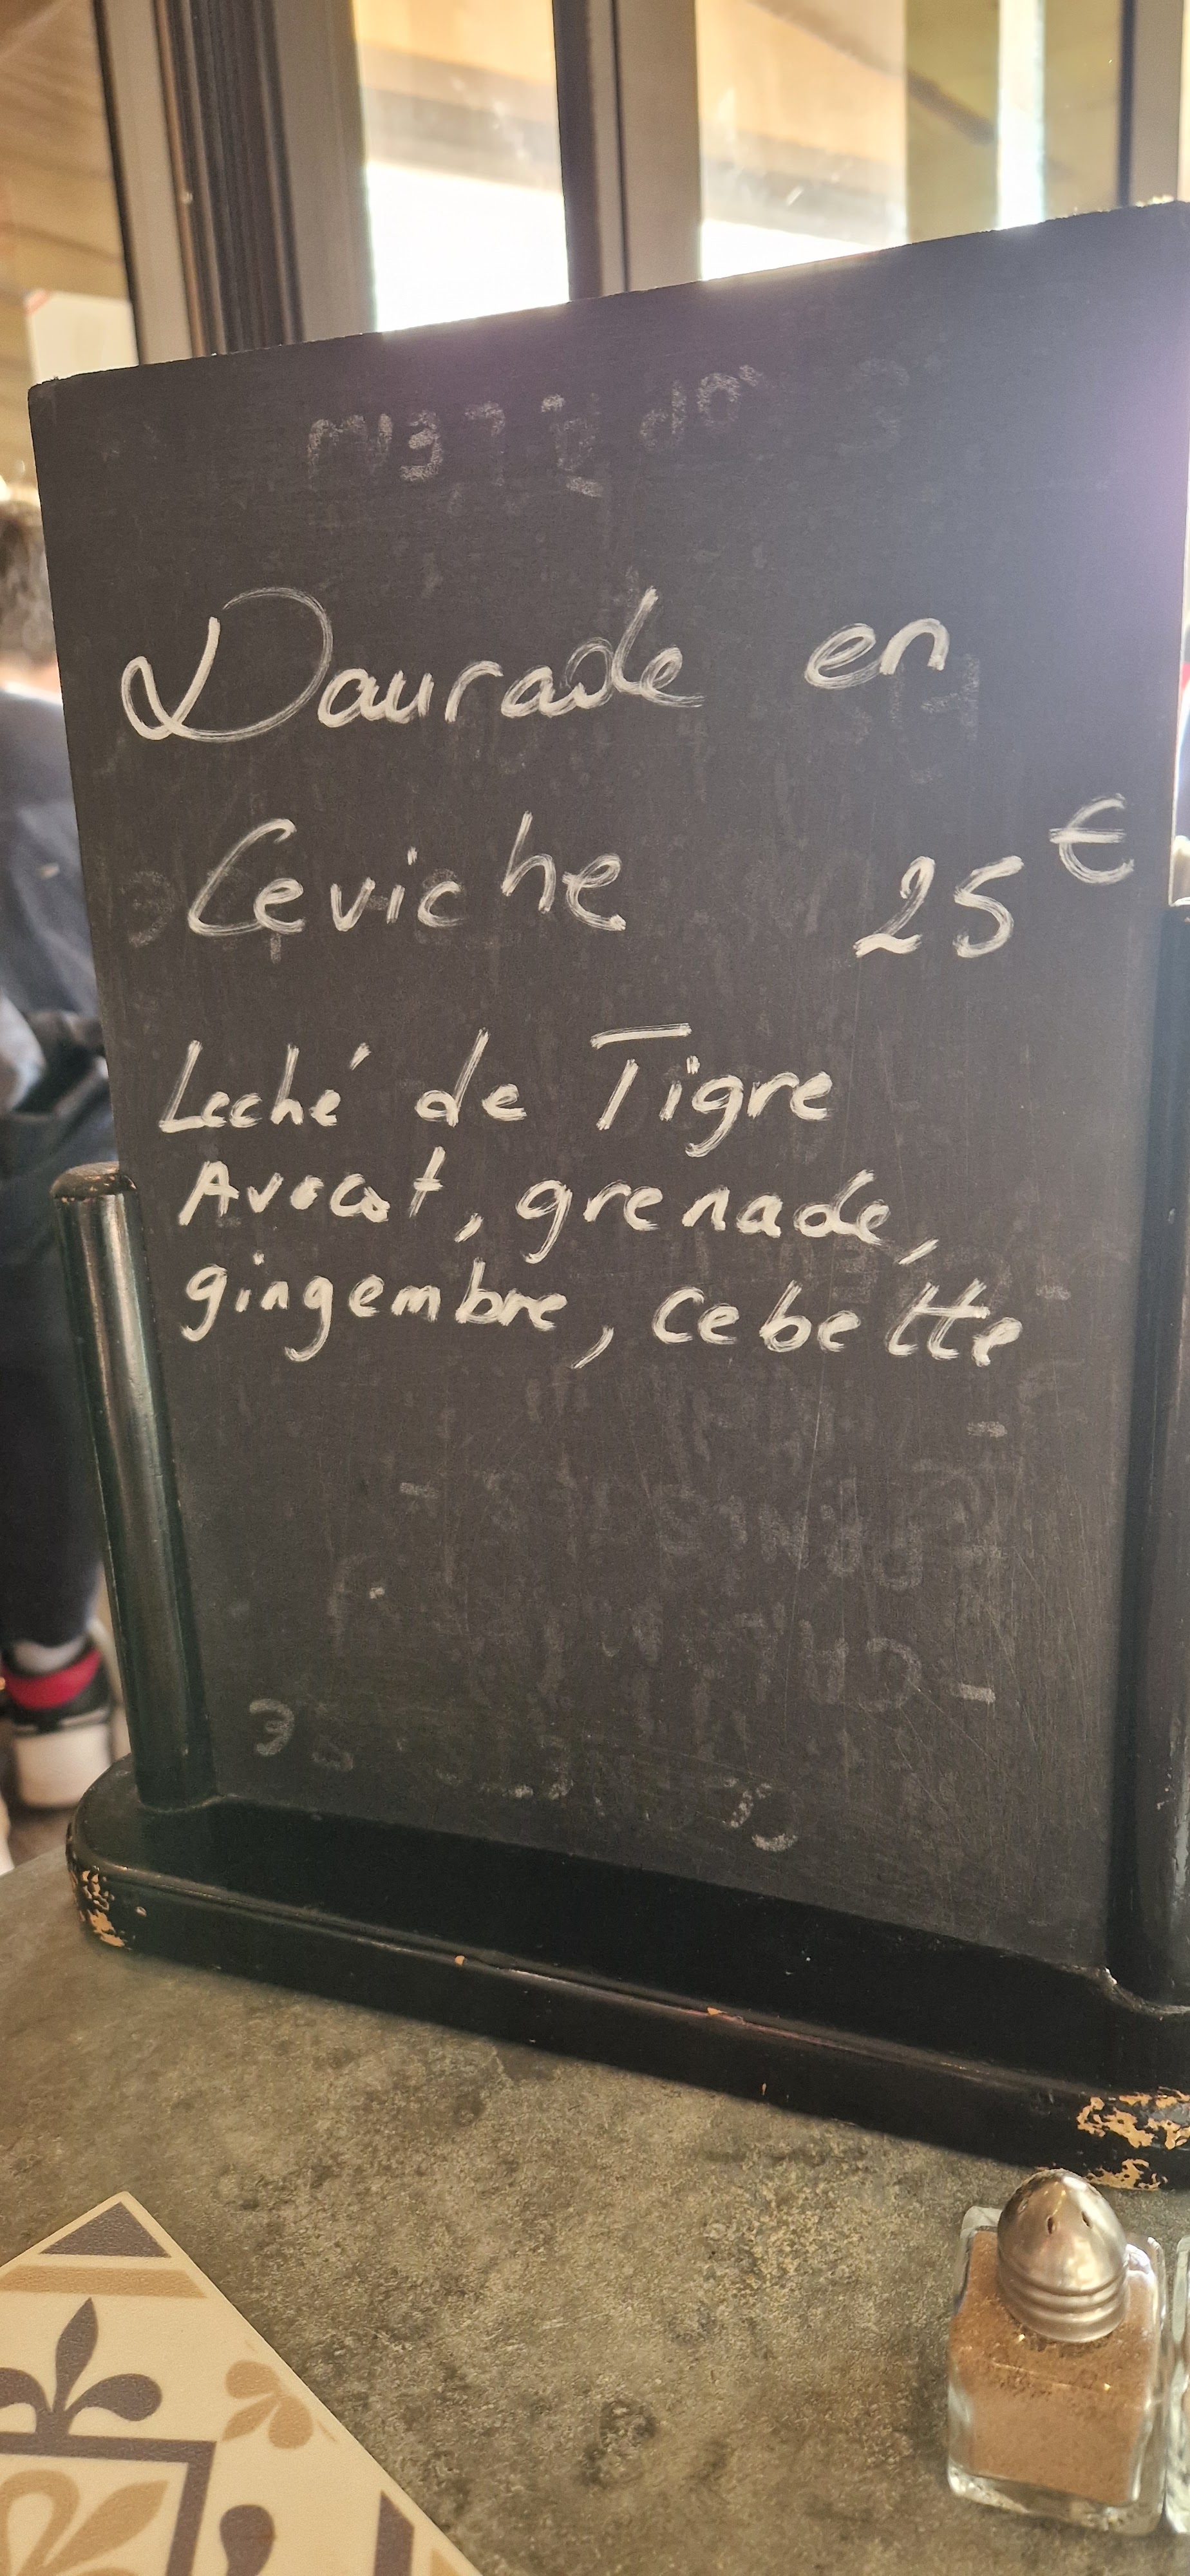 Daurade en
Ceviche 25€
Leché de Tigre
Avocat, grenade,
gingembre, cebette